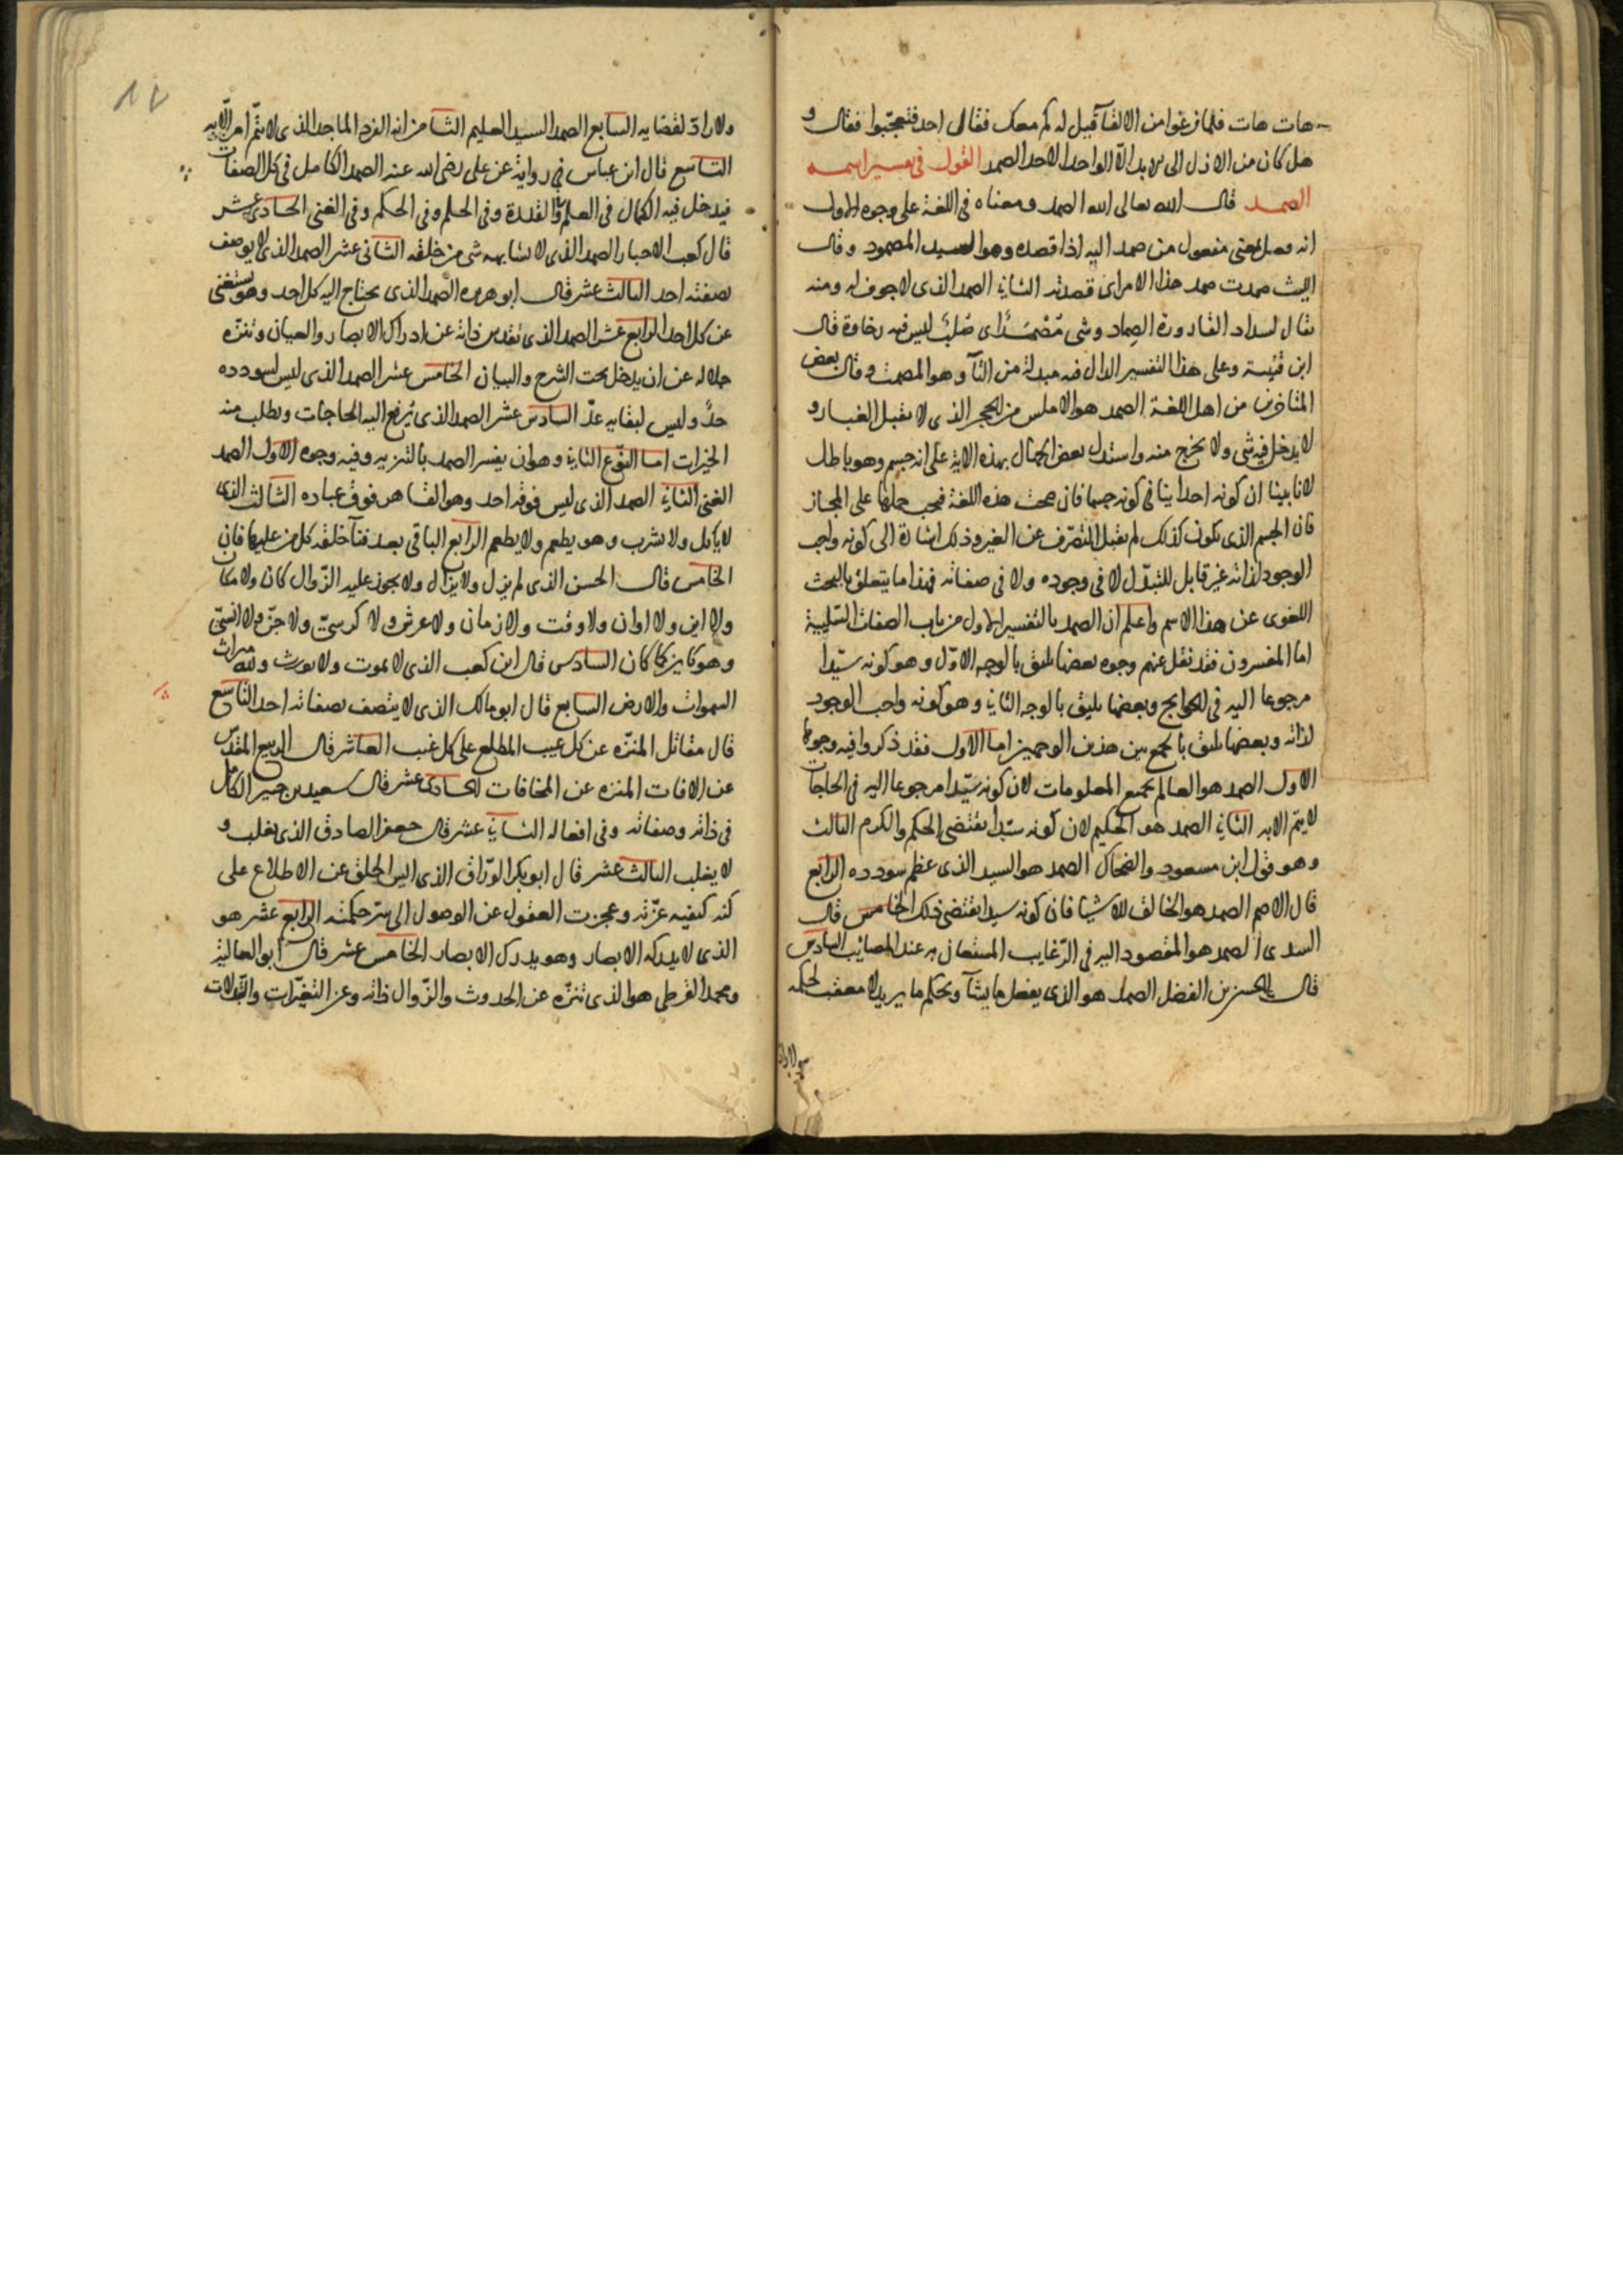 هات هات فلما فرغوا من الالقآ قيل له كم معك فقال احد فتعجبوا فقال و
هل كان من الازل الى الابد الا الواحد الاحد الصمد القول فى تفسير اسمه
الصمد قال الله تعالى الله الصمد ومعناه فى اللغة على وجوه الاول
انه فعل بمعنى مفعول من صمد اليه اذا قصده وهو السيد المصمود وقال
الليث صمدت صمد هذا الامر اى قصدته الثانى الصمد الذى لا جوف له ومنه
يقال لسداد القارورة الصماد وشى مصمد اى صلب ليس فيه رخاوة قال
ابن قتيبة وعلى هذا التفسير الدال فيه مبدلة من التآ وهو المصمت وقال بعض
المتاخرين من اهل اللغة الصمد هو الاملس من الحجر الذى لا يقبل الغبار و
لا يدخل فيه شى ولا يخرج منه واستدل بعض الجهال بهذه الاية على انه جسم وهو باطل
لانا بينا ان كونه احدا ينافى كونه جسما فان صحت هذه اللغة فيجب حملها على المجاز
فان الجسم الذى يكون كذلك لم يقبل التصرف عن الغير وذلك اشارة الى كونه واجب
الوجود لذاته غير قابل للتبدل لا فى وجوده ولا فى صفاته فهذا ما يتعلق بالبحث
اللغوى عن هذا الاسم واعلم ان الصمد بالتفسير الاول من باب الصفات السلبية
اما المفسرون فقد نقل عنهم وجوه بعضها يليق بالوجه الاول وهو كونه سيدا
مرجوعا اليه فى الحوايج وبعضها يليق بالوجه الثانى وهو كونه واجب الوجود
لذاته وبعضها يليق بالجمع بين هذين الوجهين اما الاول فقد ذكروا فيه وجوها
الاول الصمد هو العالم بجميع المعلومات لان كونه سيدا مرجوعا اليه فى الحاجات
لا يتم الا به الثانى الصمد هو الحكيم لان كونه سيدا يقتضى الحكم والكرم الثالث
وهو قول ابن مسعود والضحاك الصمد هو السيد الذى عظم سودده الرابع
قال الاصم الصمد هو الخالق للاشيا فان كونه سيدا يقتضى ذلك الخامس قال
السدى الصمد هو المقصود اليه فى الرغايب المستعان به عند المصائب السادس
قال الحسن بن الفضل الصمد هو الذى يفعل ما يشآ ويحكم ما يريد لا معقب لحكمه
ولا راد لقضايه السابع الصمد السيد العليم الثامن انه الفرد الماجد الذى لا يتم امر الا به
التاسع قال ابن عباس فى رواية عن على رضى الله عنه الصمد الكامل فى كل الصفات
فيدخل فيه الكمال فى العلم والقدرة وفى الحلم وفى الحكم وفى الغنى الحادى عشر
قال كعب الاحبار الصمد الذى لا يشابهه شى من خلقه الثانى عشر الصمد الذى لا يوصف
بصفته احد الثالث عشر قال ابو هريره الصمد الذى يحتاج اليه كل احد وهو يستغنى
عن كل احد الرابع عشر الصمد الذى تقدس ذاته عن ادراك الابصار والعيان وتنزه
جلاله عن ان يدخل تحت الشرح والبيان الخامس عشر الصمد الذى ليس لسودده
حد وليس لبقايه عد السادس عشر الصمد الذى ترفع اليه الحاجات ويطلب منه
الخيرات اما النوع الثانى وهو ان يفسر الصمد بالتنزيه وفيه وجوه الاول الصمد
الغنى الثانى الصمد الذى ليس فوقه احد وهو القاهر فوق عباده الثالث الذى
لا ياكل ولا يشرب وهو يطعم ولا يطعم الرابع الباقى بعد فنآ خلقه كل من عليها فان
الخامس قال الحسن الذى لم يزل ولا يزال ولا يجوز عليه الزوال كان ولا مكان
ولا اين ولا اوان ولا وقت ولا زمان ولا عرش ولا كرسى ولا جنى ولا انسى
وهو كاين كما كان السادس قال ابن كعب الذى لا يموت ولا يورث ولله ميراث
السموات والارض السابع قال ابو مالك الذى لا يتصف بصفاته احد التاسع
قال مقاتل المنزه عن كل عيب المطلع على كل غيب العاشر قال الربيع المقدس
عن الافات المنزه عن المخافات الحادى عشر قال سعيد بن جبير الكامل
فى ذاته وصفاته وفى افعاله الثانى عشر قال جعفر الصادق الذى يغلب و
لا يغلب الثالث عشر قال ابو بكر الوراق الذى ايس الخلق عن الاطلاع على
كنه كيفيه عزته وعجزت العقول عن الوصول الى سر حكمته الرابع عشر هو
الذى لا يدركه الابصار وهو يدرك الابصار الخامس عشر قال ابو العالية
ومحمد القرظى هو الذى تنزه عن الحدوث والزوال ذاته وعن التغيرات والتبدلات